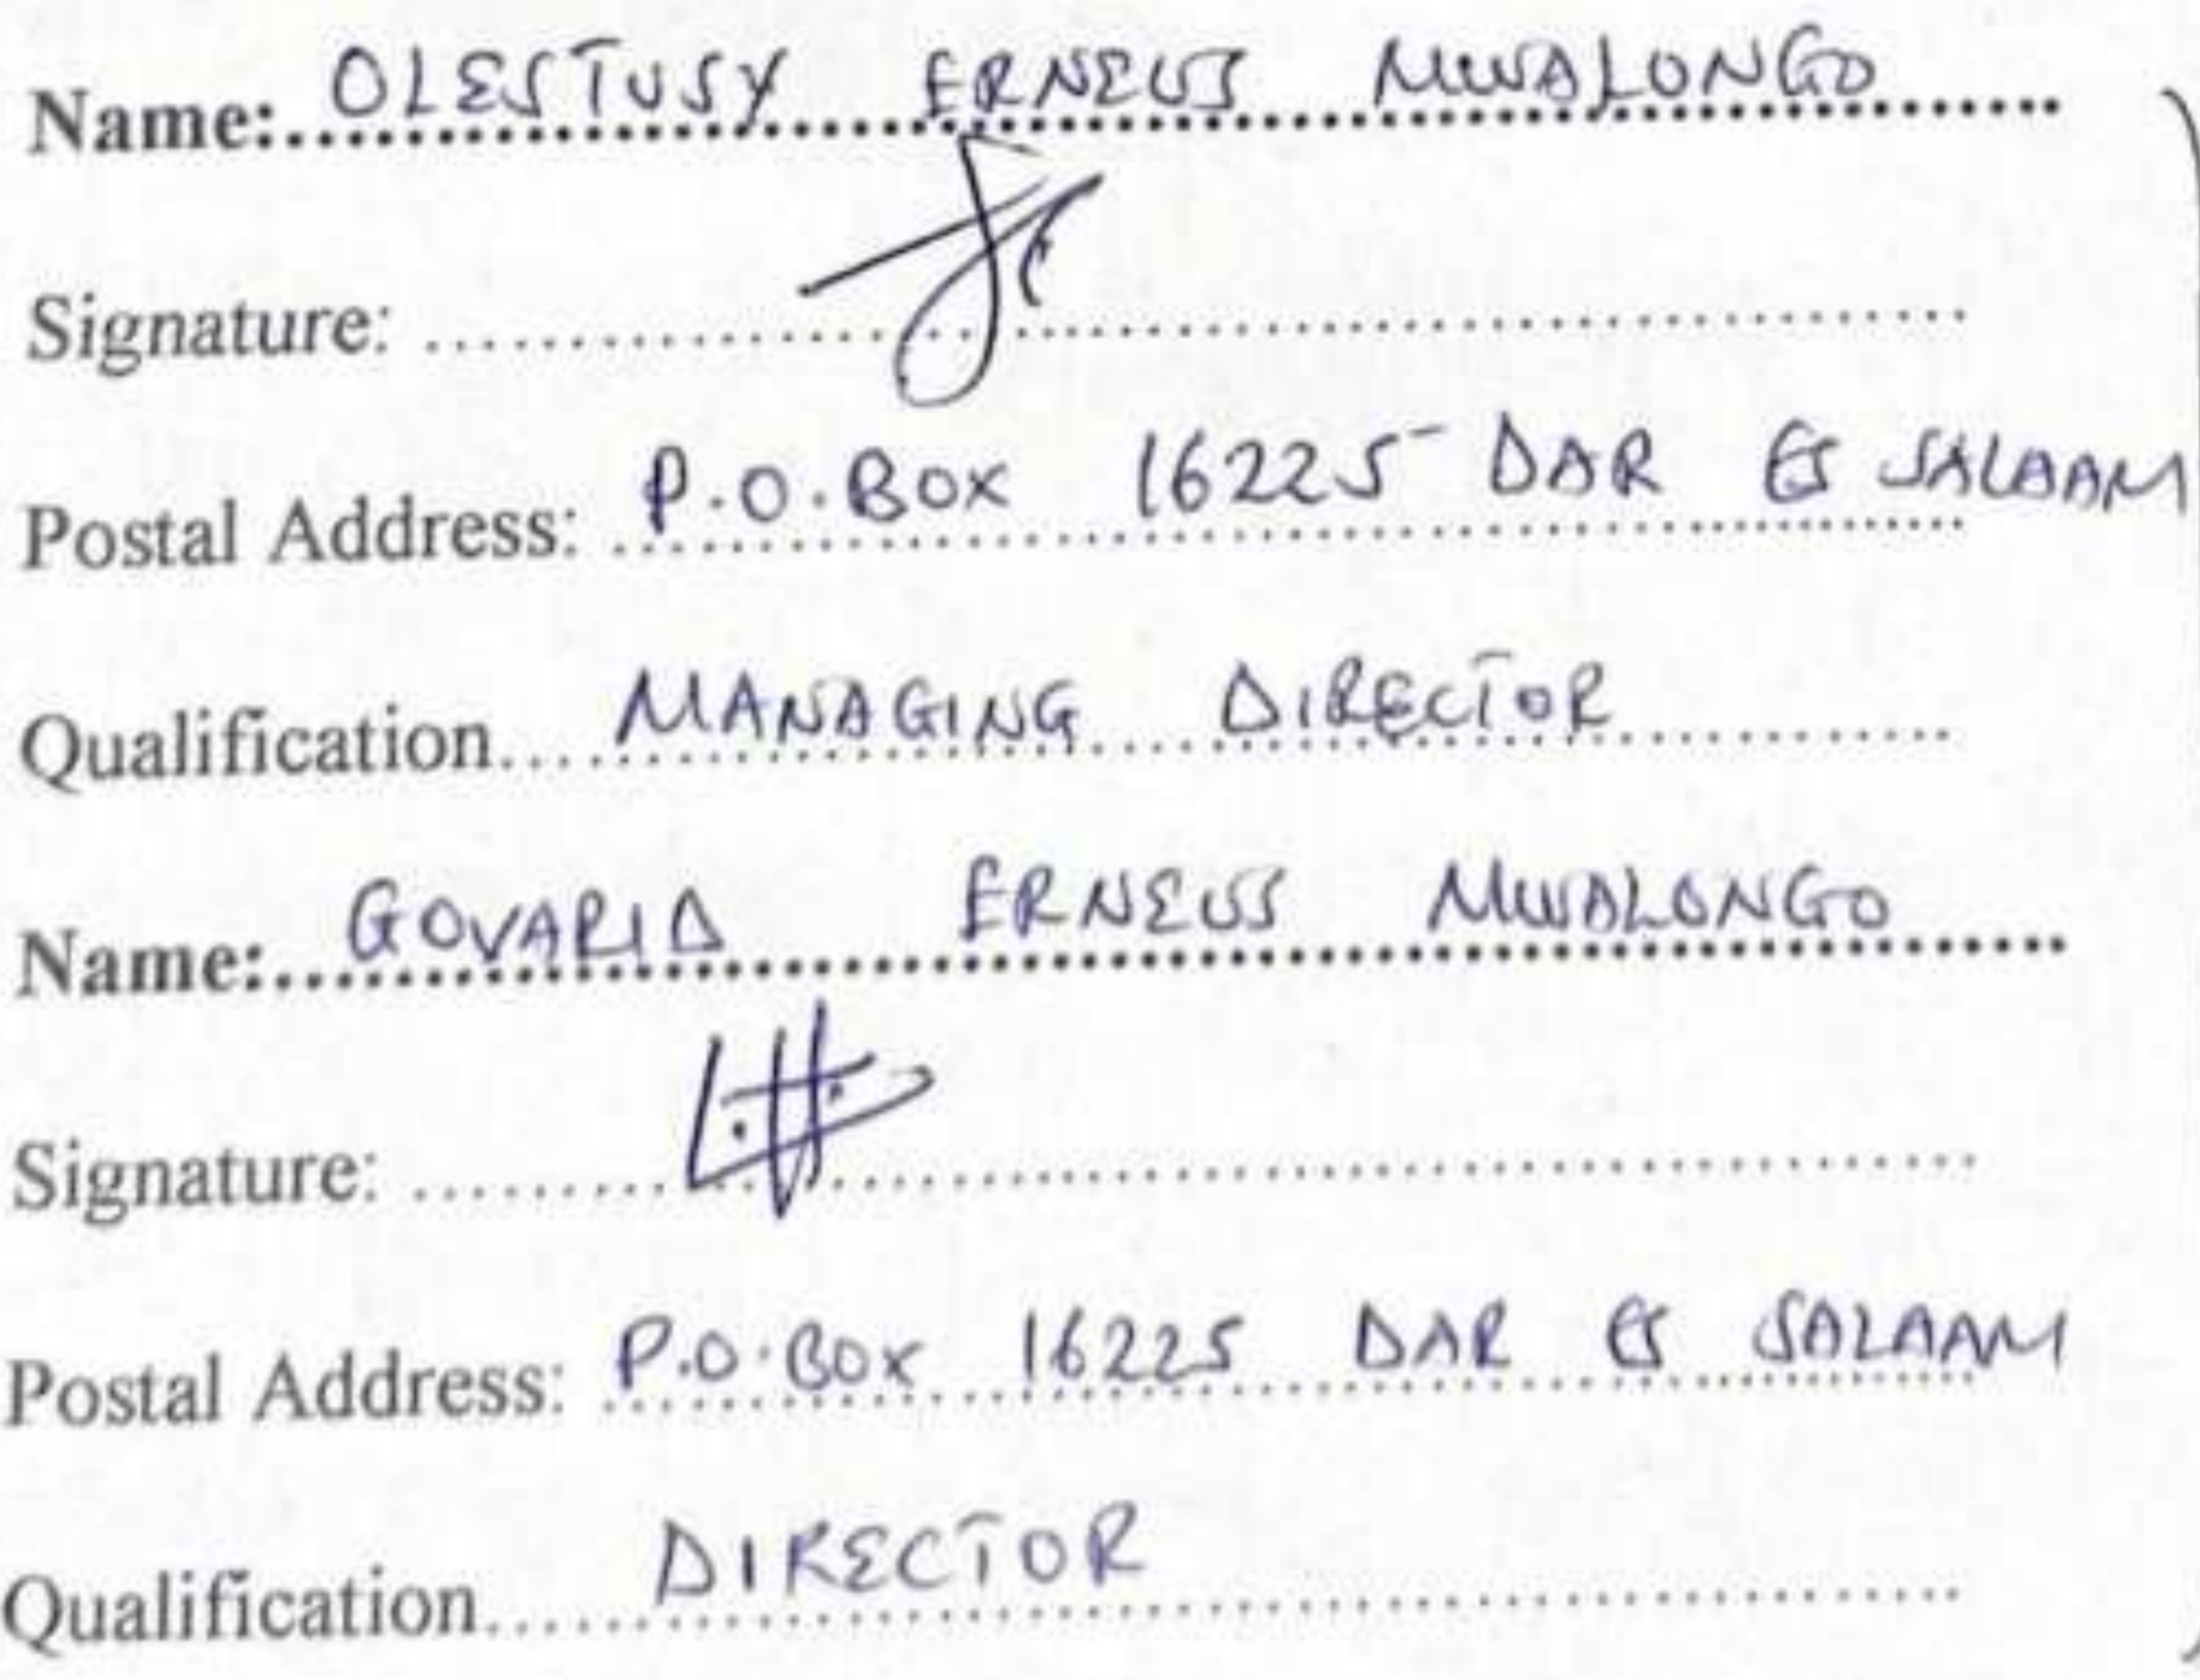 Name: OLESTUSY ERNEUS MWALONGO
Signature:
Postal Address: P.O.BOX 16225 DAR ES SALAAM
Qualification MANAGING DIRECTOR
Name: GOVARID ERNEUS MWALONGO
Signature:
Postal Address: P.O.BOX 16225 DAR ES SALAAM
Qualification DIRECTOR